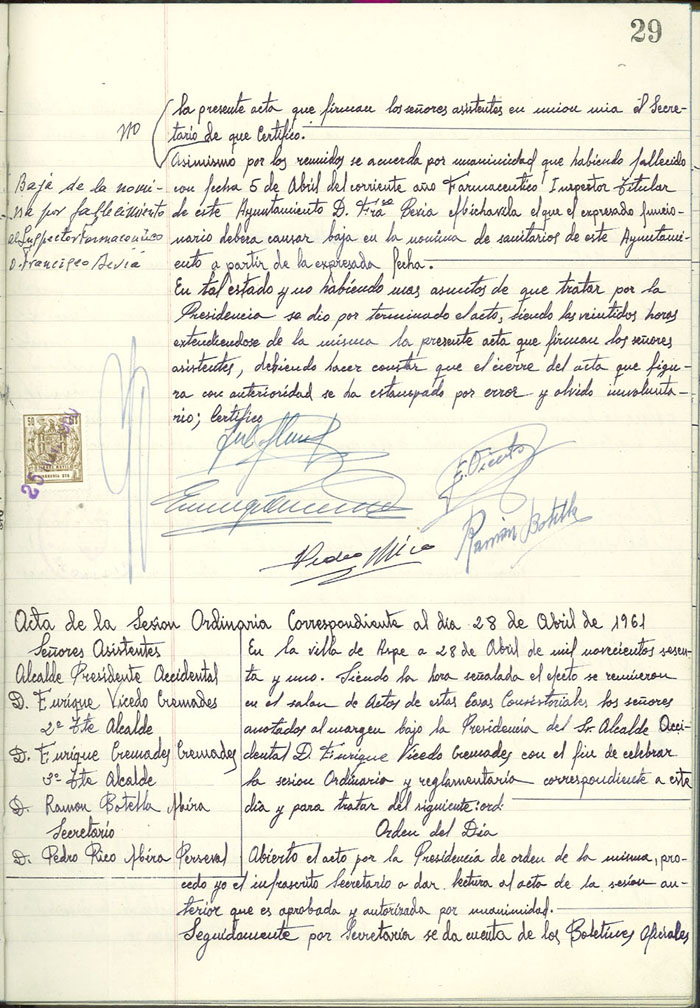 29
la presente acta que firman los señores asistentes en union mia el Secre-
tario de que Certifico.
no
Asimismo por los reunidos se acuerda por unanimidad que habiendo fallecido
con fecha 5 de Abril del corriente año Farmaceutico Inspector Titular
de este Ayuntamiento D. Frᶜᵒ el que el expresado funcio-
nario debera causar baja en la nomina de sanitarios de este Ayuntami-
ento a partir de la expresada fecha.
Baja de la nomi-
na por fallecimiento
al Inspector Farmaceutico
D. Francisco
En tal estado y no habiendo mas asuntos de que tratar por la
Presidencia se dio por terminado el acto, siendo las veintidos horas
extendiendose de la misma la presente acta que firman los señores
asistentes, debiendo hacer constar que el cierre del acta que figu-
ra con anterioridad se ha estampado por error y olvido involunta-
rio; Certifico
50
25
E. Vicedo
Ramón Botella
Pedro Mira
Acta de la Sesion Ordinaria Correspondiente al dia 28 de Abril de 1961
Señores Asistentes
Alcalde Presidente Accidental
D. Enrique Vicedo Cremades
2º Tte Alcalde
D. Enrique Cremades Cremades
3º Tte Alcalde
D. Ramon Botella Mira
Secretario
D. Pedro Rico Mira Perseval
En la villa de Aspe a 28 de Abril de mil novecientos sesen-
ta y uno. Siendo la hora señalada el efecto se reunieron
en el salon de Actos de estas Casas Consistoriales los señores
anotados al margen bajo la Presidencia del Sr Alcalde Acci-
dental D Enrique Vicedo Cremades con el fin de celebrar
la sesion Ordinaria y reglamentaria correspondiente a este
dia y para tratar del siguiente:ord:
Orden del Dia
Abierto el acto por la Presidencia de orden de la misma, pro-
cedo yo el infrascrito Secretario a dar lectura al acta de la sesion an-
terior que es aprobada y autorizada por unanimidad.
Seguidamente por Secretaria se da cuenta de los Boletines Oficiales